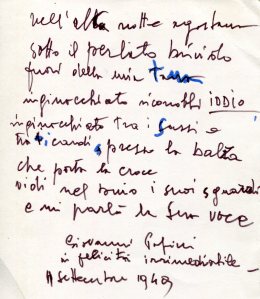 nell'alta notte agostana
sotto il perlato brivido
fuori della mia
inginocchiato riconobbi IDDIO
inginocchiato tra i sassi e
tra i cardi presso la balza
che porta la croce
vidi nel buio i suoi sguardi
e mi parlò la sua voce
Giovanni Papini
in felicità irrimediabile
settembre 1949